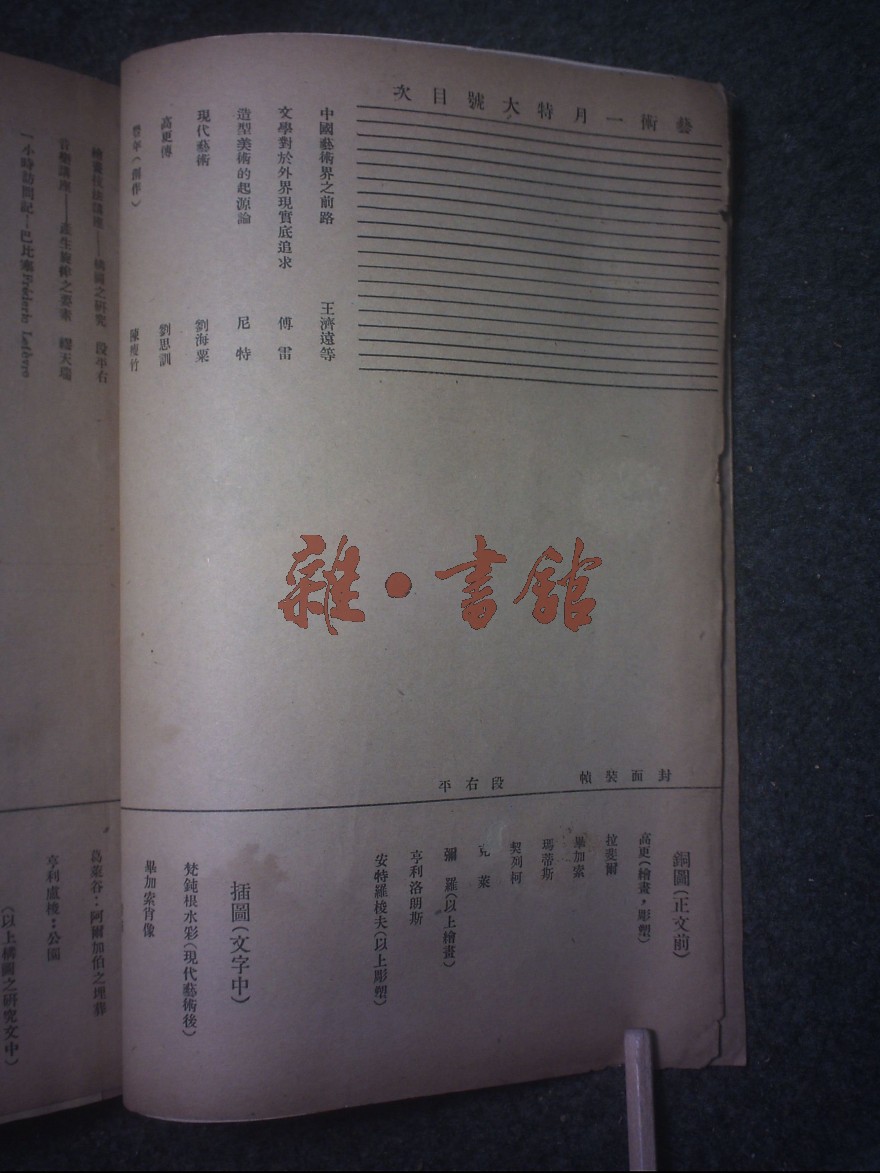 藝術一月特大號目次
中國藝術界之前路 王濟遠等
文學對於外界現實底追求 傅雷
造型美術的起源論 尼特
現代藝術 劉海粟
高更傳 劉思訓
豐年(創作) 陳瘦竹
構圖之研究 段平右
一小時訪問記—巴比塞 Frederic Lefèvre
封面裝幀 段右平
銅圖(正文前)
高更(繪畫，彫塑)
拉斐爾
畢加索
瑪蒂斯
契列柯
克萊
彌羅(以上繪畫)
亨利洛朋斯
安特羅梭夫(以上彫塑)
插圖(文字中)
梵鈍根水彩(現代藝術後)
畢加索肖像
葛萊谷：阿爾加伯之埋葬
亨利盧梭：公園
(以上構圖之研究文中)
雜·書館